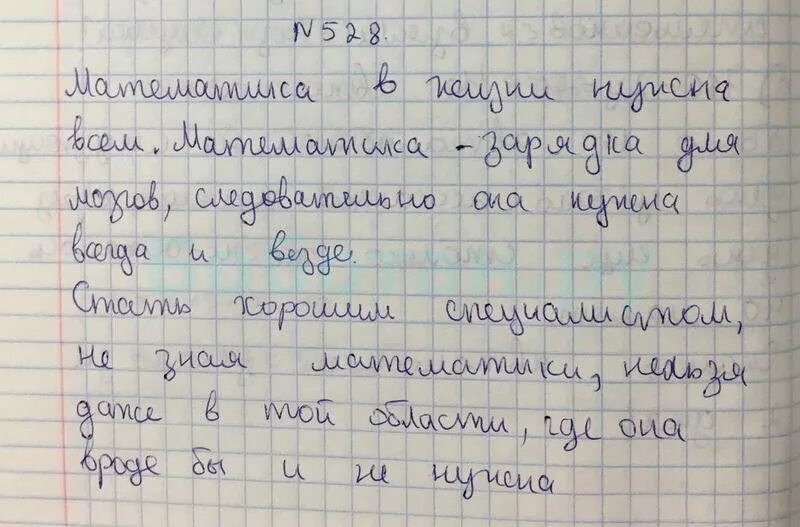 N 528.
Математика в жизни нужна
всем. Математика - зарядка для
мозгов, следовательно она нужна
всегда и везде.
Стать хорошим специалистом,
не зная математики, нельзя
даже в той области, где она
вроде бы и не нужна